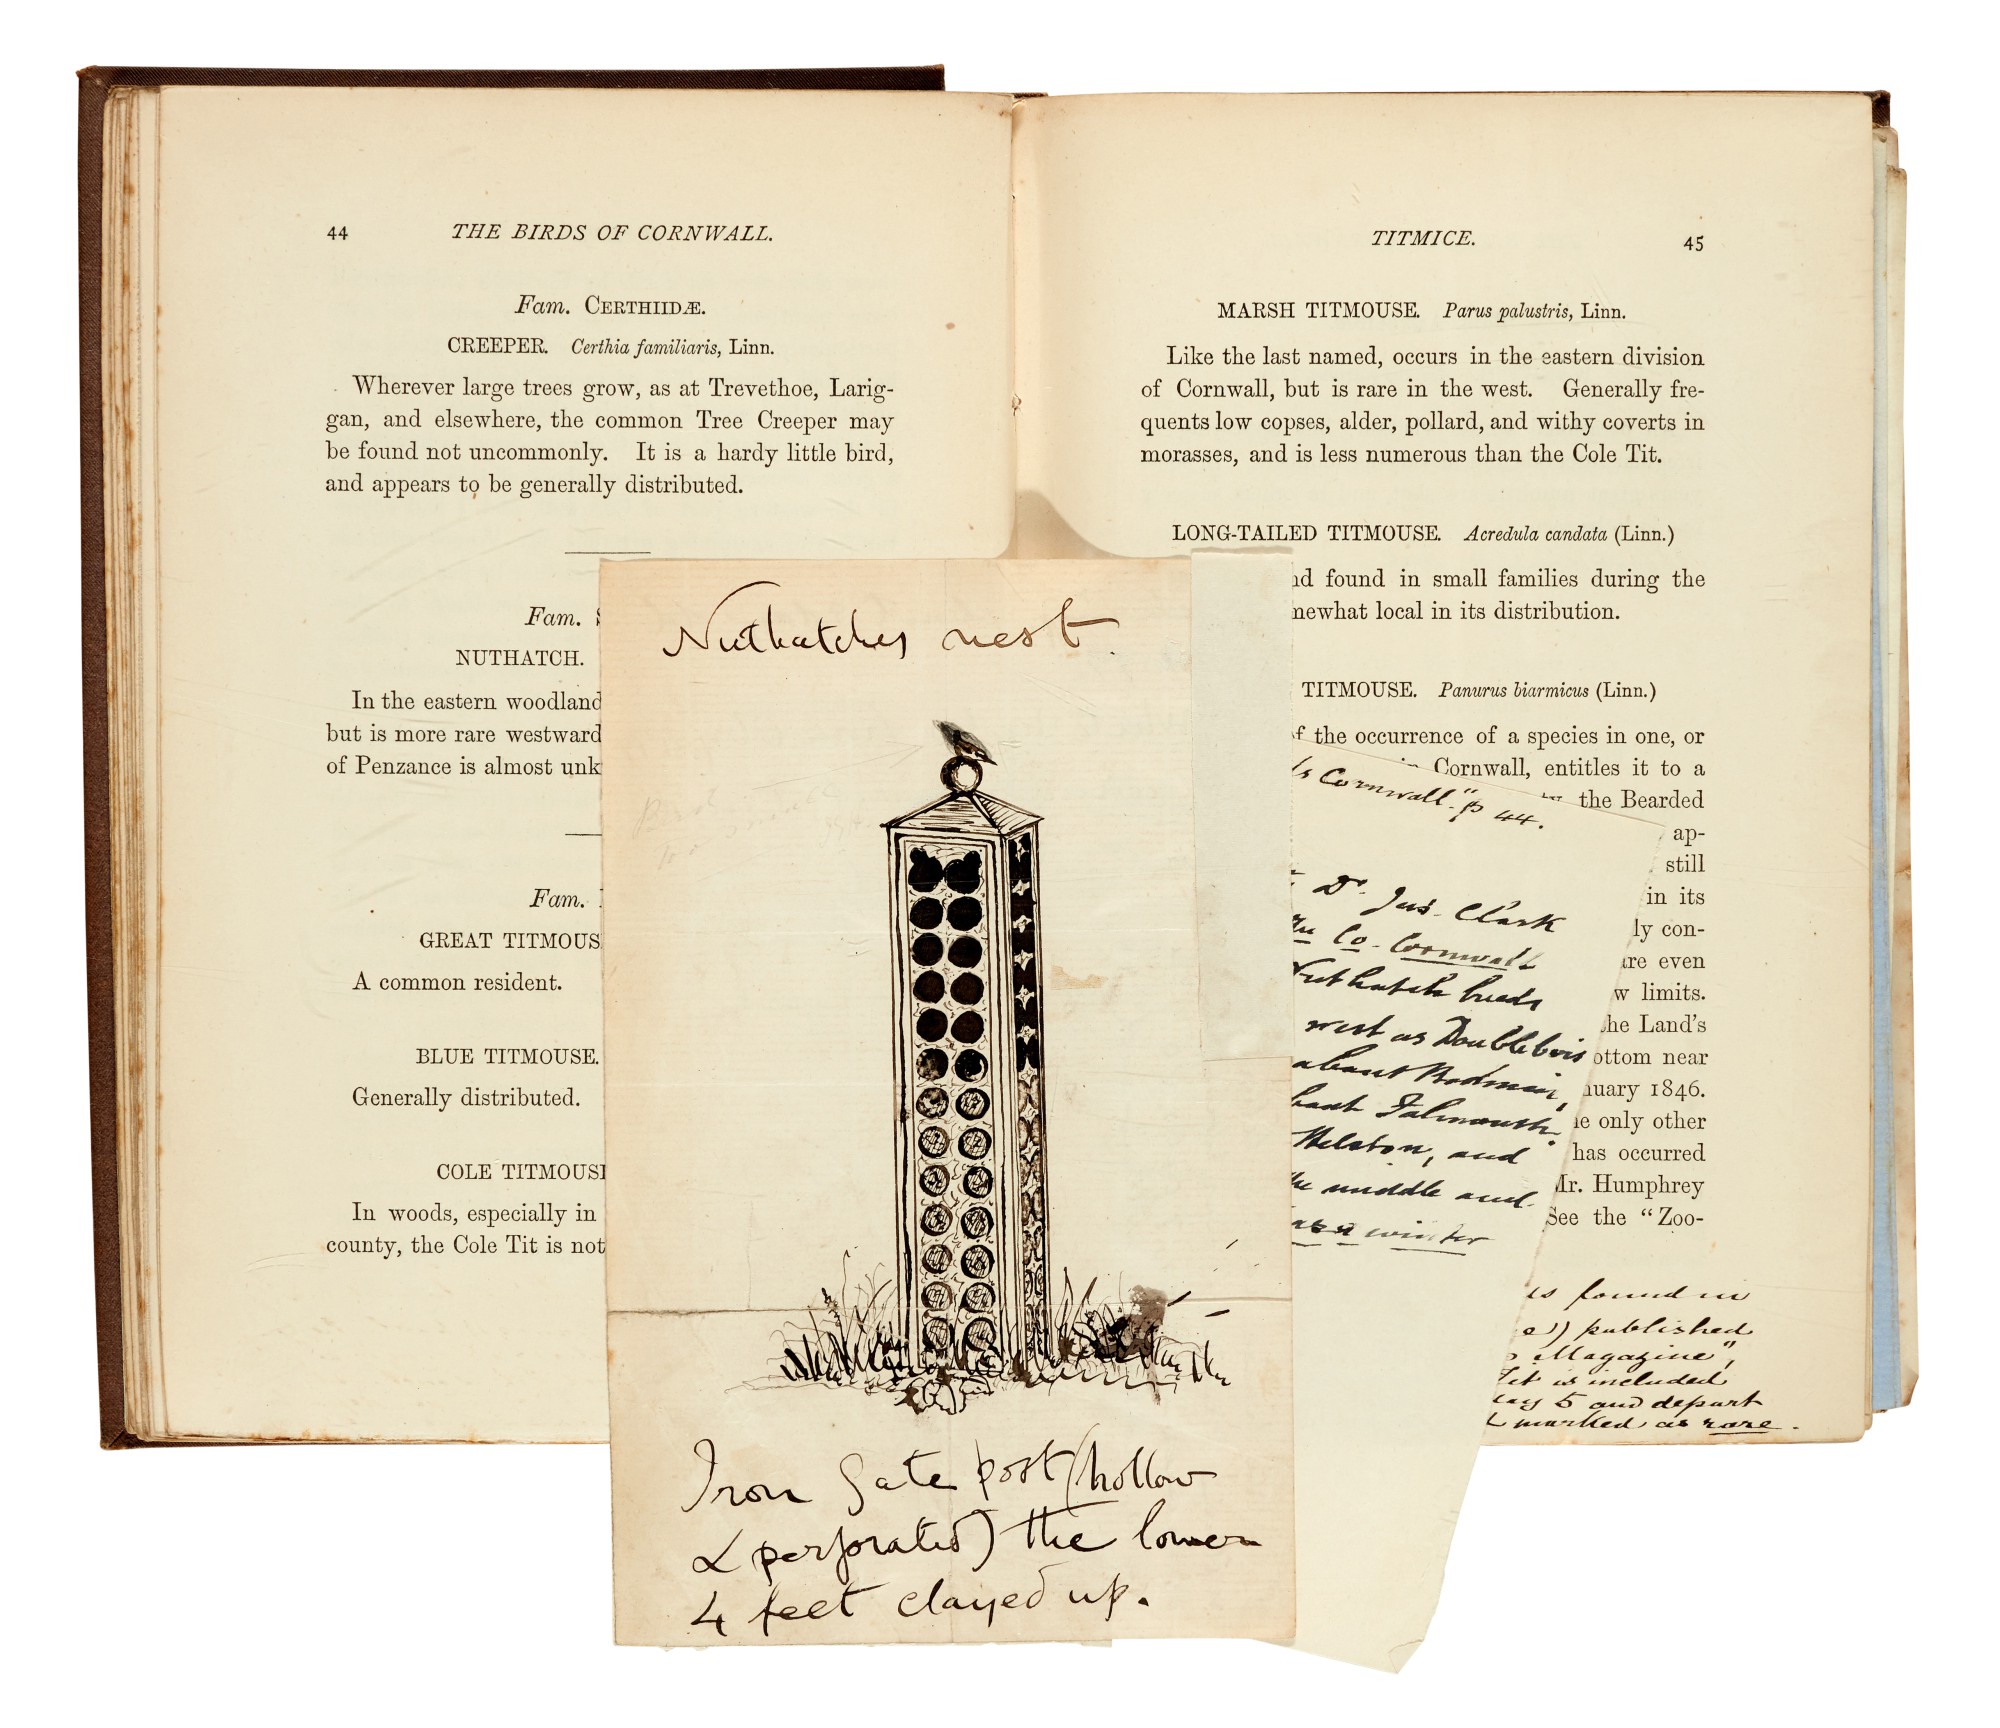 44
THE BIRDS OF CORNWALL.
Fam. CERTHIIDÆ.
CREEPER. Certhia familiaris, Linn.
Wherever large trees grow, as at Trevethoe, Larig-
gan, and elsewhere, the common Tree Creeper may
be found not uncommonly. It is a hardy little bird,
and appears to be generally distributed.
Fam.
NUTHATCH.
In the eastern woodland
but is more rare westward
of Penzance is almost unk
Fam.
GREAT TITMOUS
A common resident.
BLUE TITMOUSE.
Generally distributed.
COLE TITMOUS
In woods, especially in
county, the Cole Tit is not
Nuthatches nest.
Iron Gate post (hollow
& perforated) the lower
4 feet clayed up.
TITMICE.
45
MARSH TITMOUSE. Parus palustris, Linn.
Like the last named, occurs in the eastern division
of Cornwall, but is rare in the west. Generally fre-
quents low copses, alder, pollard, and withy coverts in
morasses, and is less numerous than the Cole Tit.
LONG-TAILED TITMOUSE. Acredula candata (Linn.)
nd found in small families during the
mewhat local in its distribution.
TITMOUSE. Panurus biarmicus (Linn.)
f the occurrence of a species in one, or
in Cornwall, entitles it to a
the Bearded
ap-
still
in its
ly con-
are even
w limits.
the Land's
ottom near
nuary 1846.
e only other
has occurred
Mr. Humphrey
See the "Zoo-
ds Cornwall" p 44.
Dr. Jas. Clark
Co. Cornwall
Nuthatch breeds
west as Doublebois
about Bodmin,
bout Falmouth.
Helston, and
the middle and
as a winter
is found in
e) published
Magazine",
Tit is included
May 5 and depart
marked as rare.